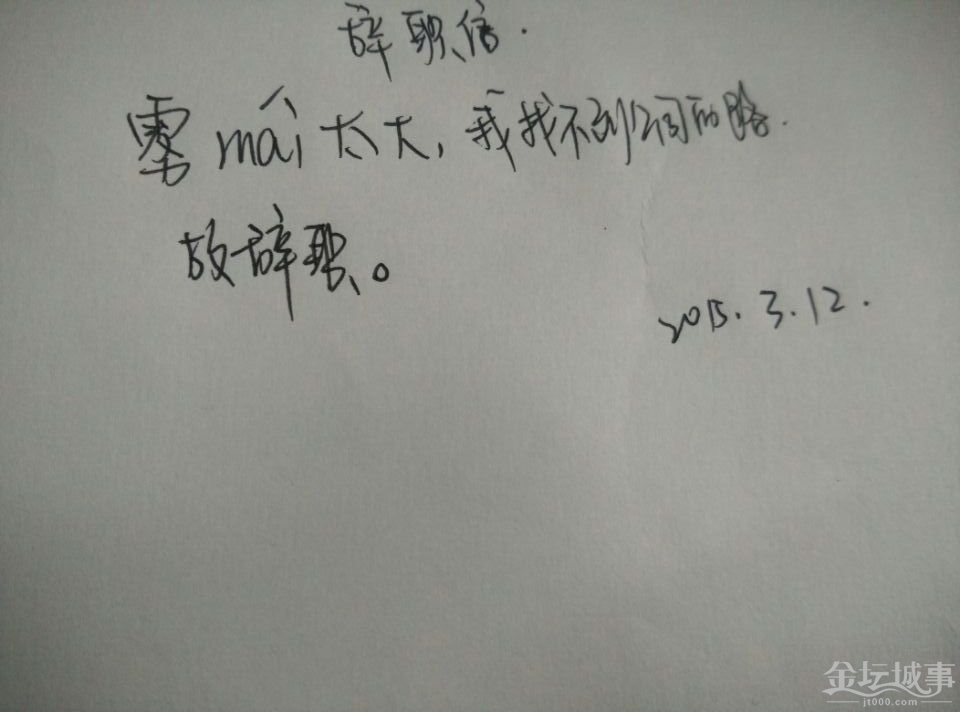 辞职信.
雾mai太大,我找不到公司的路.
故辞职。
2015.3.12.
金坛城事
jt000.com